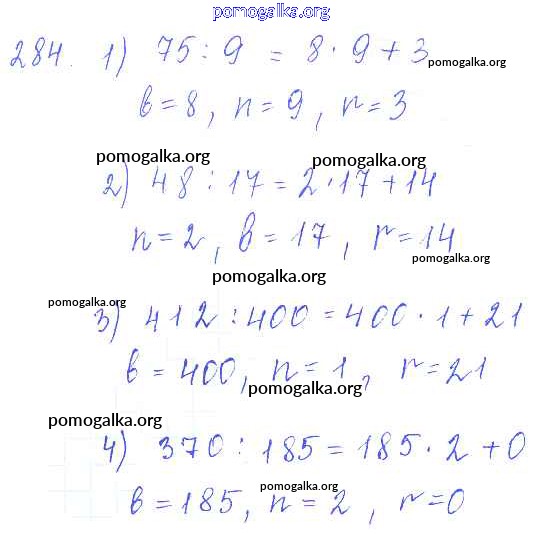 pomogalka.org
284. 1) 75 : 9 = 8 · 9 + 3 pomogalka.org
b = 8, n = 9, r = 3
pomogalka.org pomogalka.org
2) 48 : 17 = 2 · 17 + 14
n = 2, b = 17, r = 14
pomogalka.org
pomogalka.org
pomogalka.org
3) 412 : 400 = 400 · 1 + 21
b = 400, n = 1, r = 21
pomogalka.org
pomogalka.org
4) 370 : 185 = 185 · 2 + 0
pomogalka.org
b = 185, n = 2, r = 0